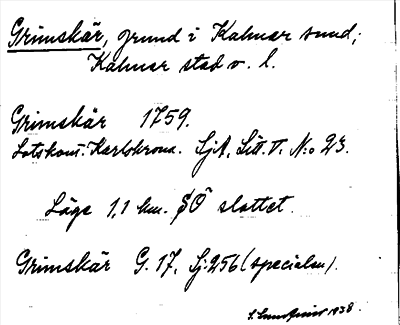 Grimskär, grund i Kalmar sund;
Kalmar stad o. l.
Grimskär 1759.
Lotskont. Karlskrona. SjA, Litt. V. N:o 23.
Läge 1,1 km. SÖ slottet.
Grimskär G. 17, Sj:256 (specialen).
1938